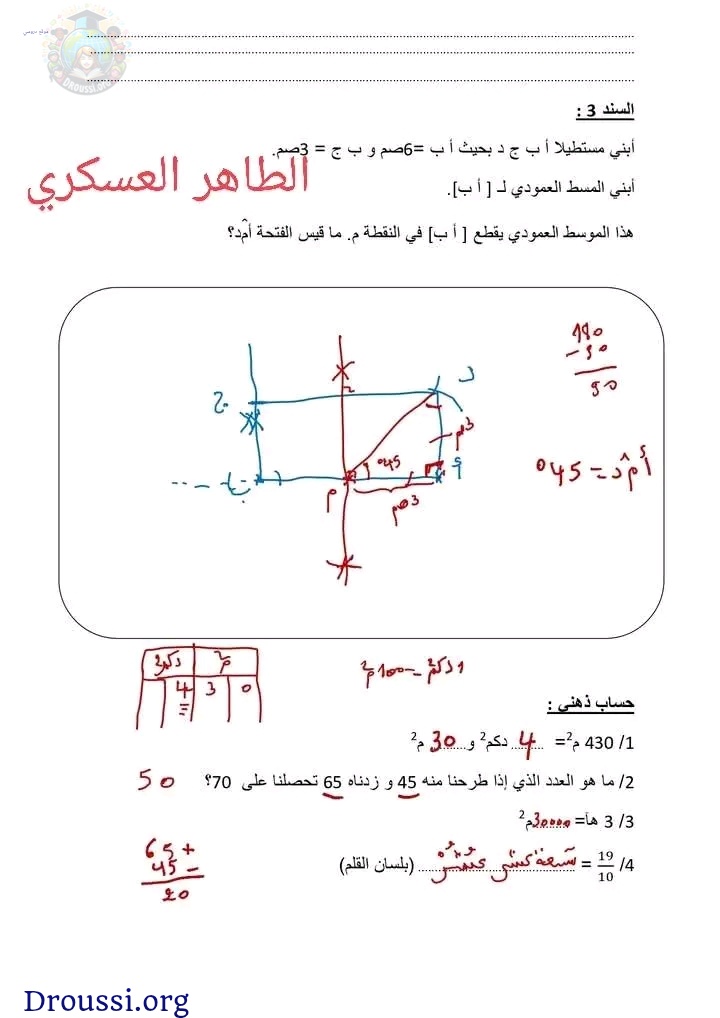 موقع دروسي
DROUSSI.ORG
السند 3 :
أبني مستطيلا أ ب ج د بحيث أ ب =6صم و ب ج = 3صم.
الطاهر العسكري
أبني المسط العمودي لـ [ أ ب].
هذا الموسط العمودي يقطع [ أ ب] في النقطة م. ما قيس الفتحة أم̂د؟
180
- 90
90
ج
د
45°
3صم
ب
م
أ
3صم
أم̂د = 45°
دكم² م²
4 3 0
1 دكم² = 100 م²
حساب ذهني :
1/ 430 م²= 4 دكم² و 30 م²
2/ ما هو العدد الذي إذا طرحنا منه 45 و زدناه 65 تحصلنا على 70؟ 50
3/ 3 هآ= 30000 م²
4/ 19/10 = تسعة عشر عشر (بلسان القلم)
65 +
45 -
20
Droussi.org